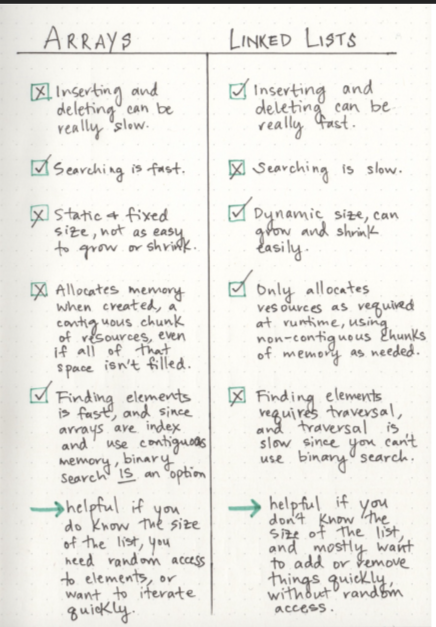 ARRAYS
Inserting and
deleting can be
really slow.
Searching is fast.
Static & fixed
size, not as easy
to grow or shrink.
Allocates memory
when created, a
contiguous chunk
of resources, even
if all of that
space isn't filled.
Finding elements
is fast, and since
arrays are index
and use contiguous
memory, binary
search IS an option
helpful if you
do know the size
of the list, you
need random access
to elements, or
want to iterate
quickly.
LINKED LISTS
Inserting and
deleting can be
really fast.
Searching is slow.
Dynamic size, can
grow and shrink
easily.
Only allocates
resources as required
at runtime, using
non-contiguous chunks
of memory as needed.
Finding elements
requires traversal,
and traversal is
slow since you can't
use binary search.
helpful if you
don't know the
size of the list,
and mostly want
to add or remove
things quickly,
without random
access.